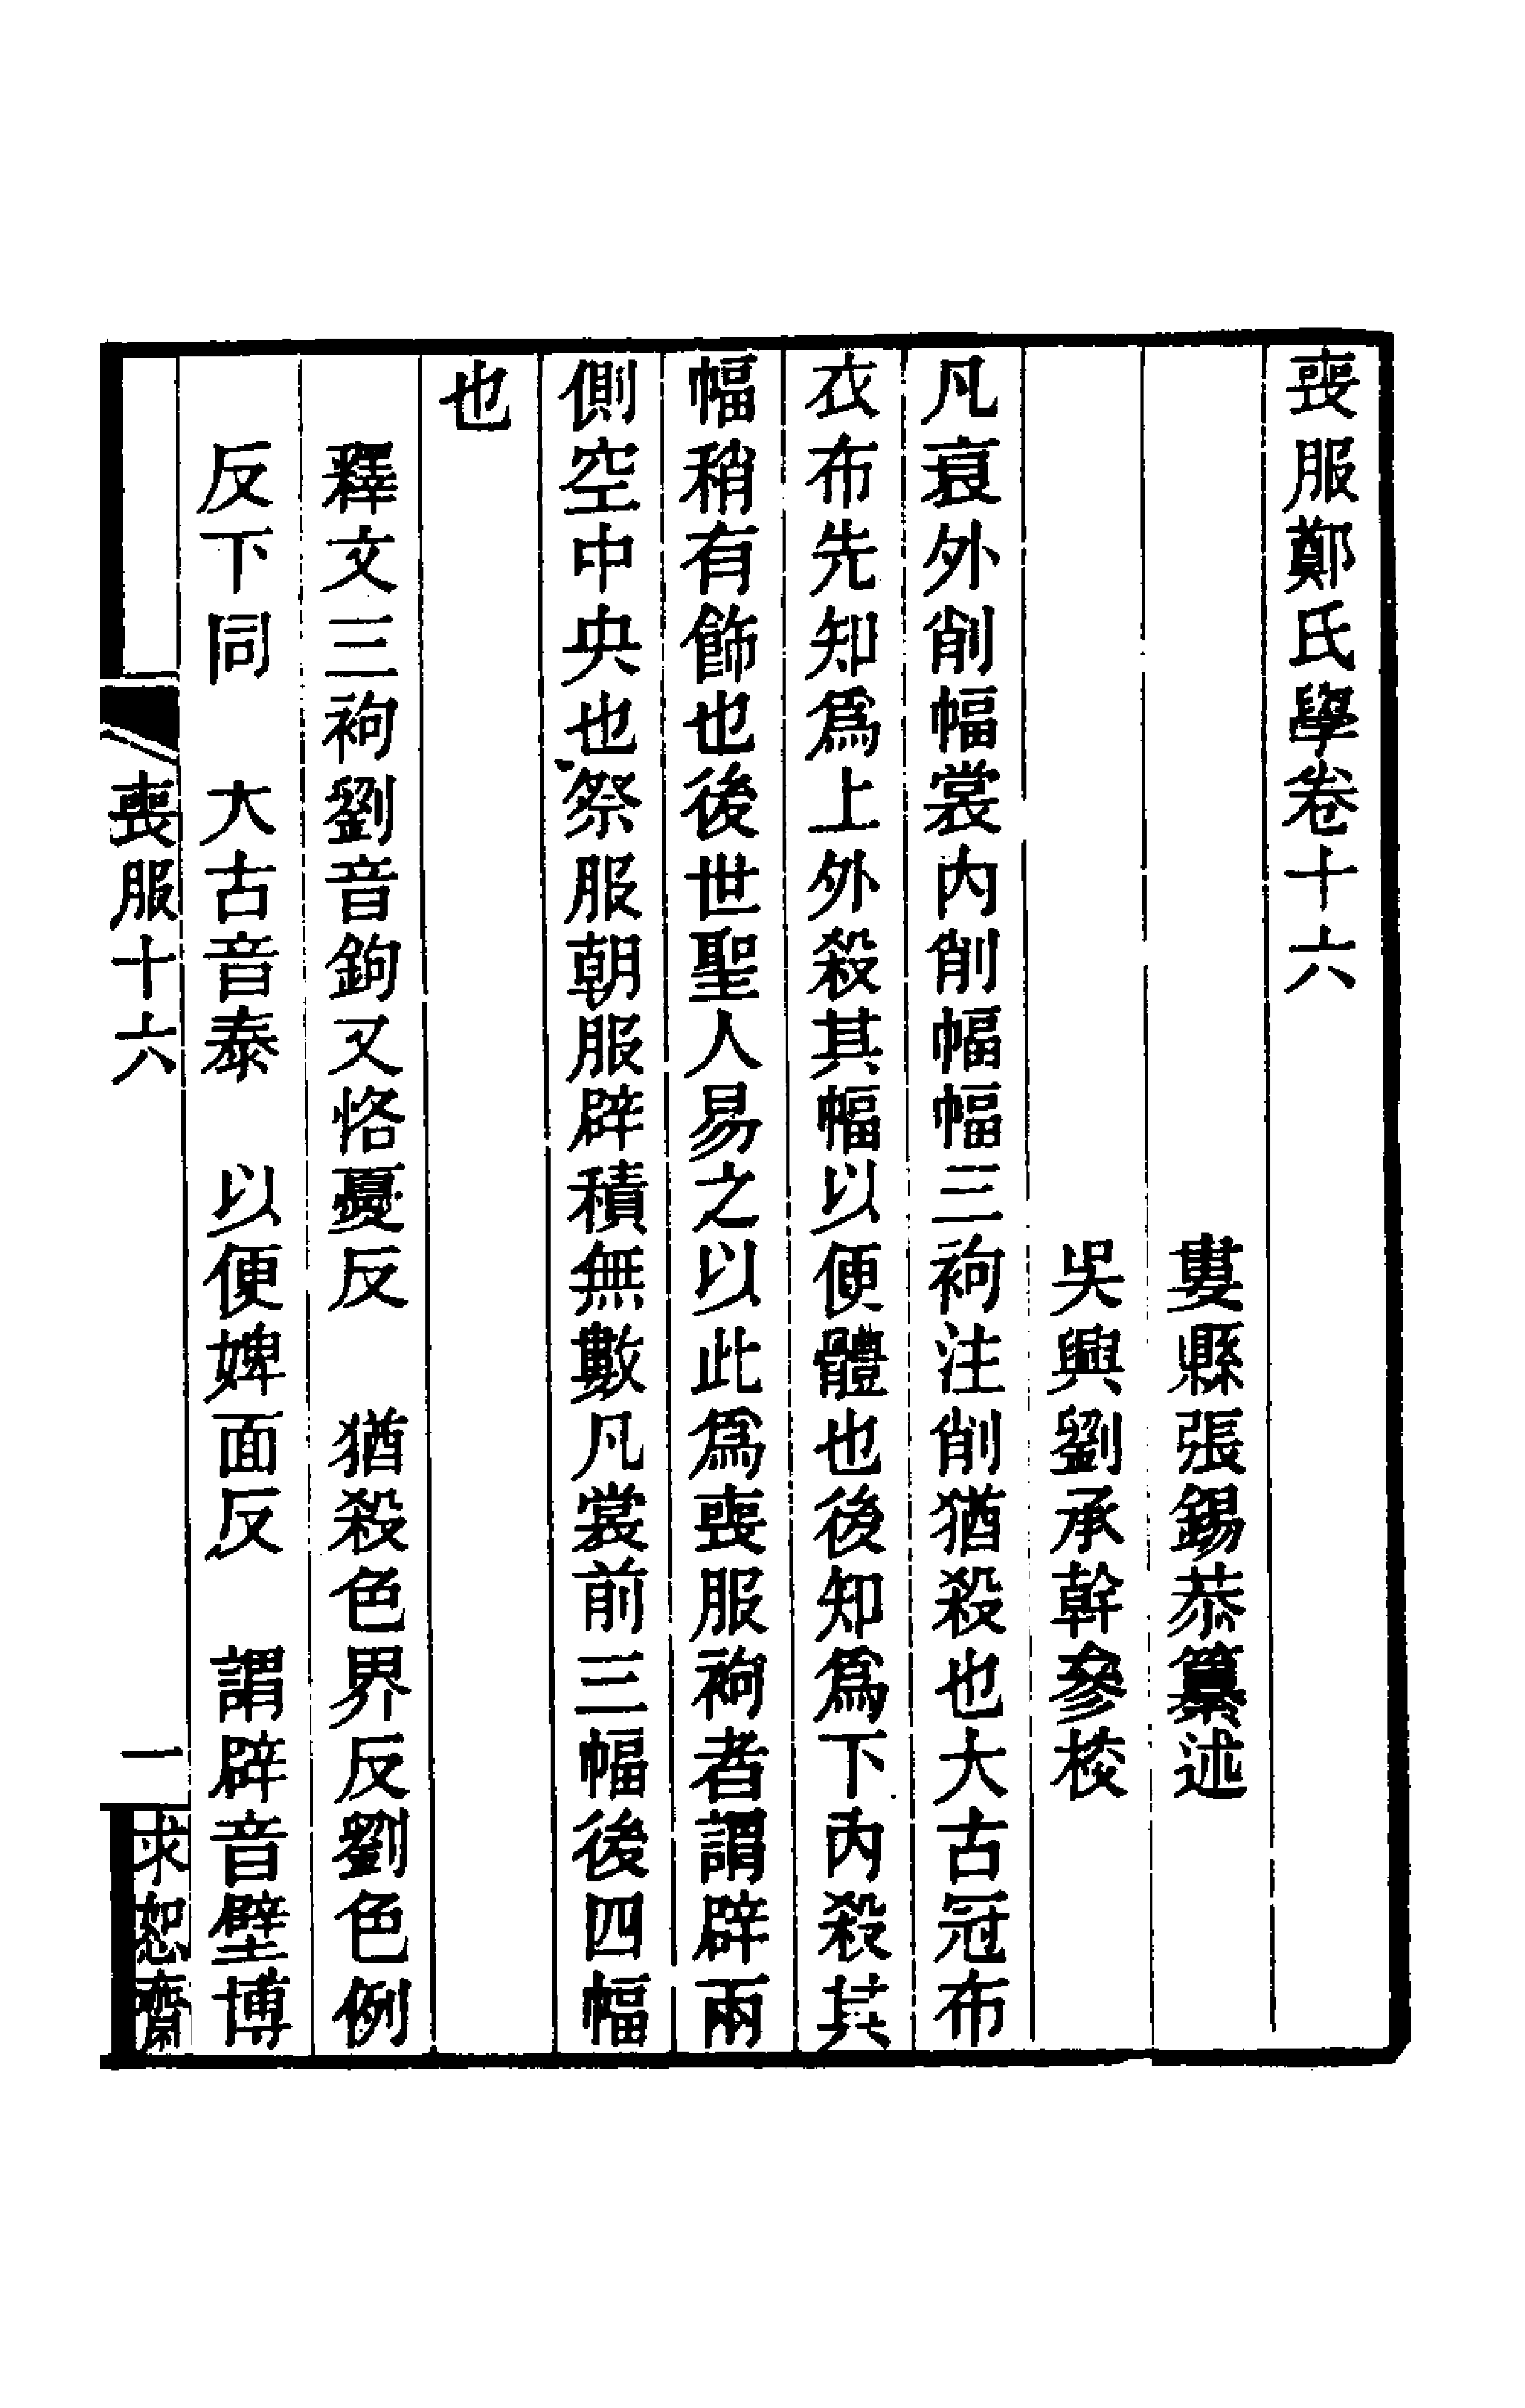 喪服鄭氏學卷十六
婁縣張錫恭纂述
吳興劉承幹參校
凡衰外削幅裳內削幅幅三袧注削猶殺也大古冠布
衣布先知爲上外殺其幅以便體也後知爲下內殺其
幅稍有飾也後世聖人易之以此爲喪服袧者謂辟兩
側空中央也祭服朝服辟積無數凡裳前三幅後四幅
也
釋文三袧劉音鉤又恪憂反　猶殺色界反劉色例
反下同　大古音泰　以便婢面反　謂辟音壁博
喪服十六
一
求恕齋